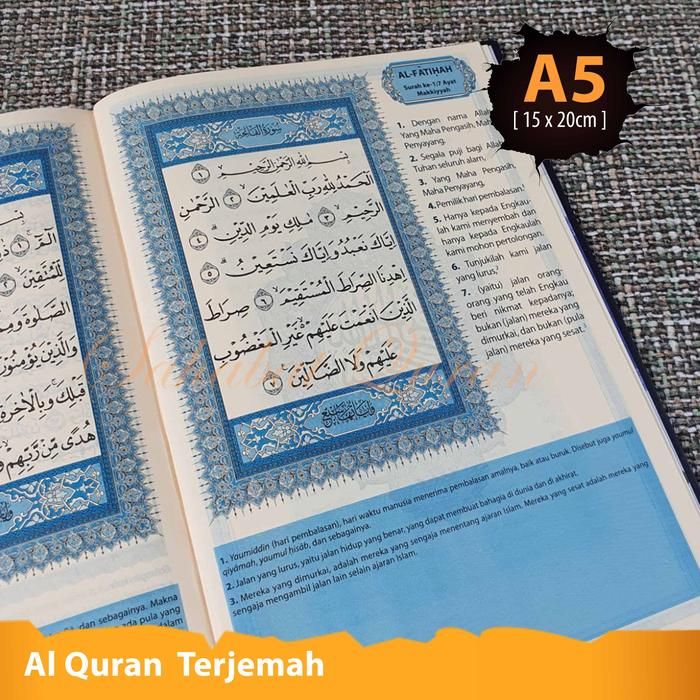 A5
[ 15 x 20cm ]
AL-FĀTIḤAH
Surah ke-1:7 Ayat
Makkiyyah
سُورَةُ الْفَاتِحَةِ
بِسْمِ اللّٰهِ الرَّحْمٰنِ الرَّحِيْمِ ١
اَلْحَمْدُ لِلّٰهِ رَبِّ الْعٰلَمِيْنَ ٢ الرَّحْمٰنِ
الرَّحِيْمِ ٣ مٰلِكِ يَوْمِ الدِّيْنِ ٤
اِيَّاكَ نَعْبُدُ وَاِيَّاكَ نَسْتَعِيْنُ ٥
اِهْدِنَا الصِّرَاطَ الْمُسْتَقِيْمَ ٦ صِرَاطَ
الَّذِيْنَ اَنْعَمْتَ عَلَيْهِمْ غَيْرِ الْمَغْضُوْبِ
عَلَيْهِمْ وَلَا الضَّاۤلِّيْنَ ٧
1. Dengan nama Allah
Yang Maha Pengasih, Maha
Penyayang.
2. Segala puji bagi Allah
Tuhan seluruh alam,
3. Yang Maha Pengasih,
Maha Penyayang,
4. Pemilik hari pembalasan.¹
5. Hanya kepada Engkau-
lah kami menyembah dan
hanya kepada Engkaulah
kami mohon pertolongan.
6. Tunjukilah kami jalan
yang lurus,²
7. (yaitu) jalan orang-
orang yang telah Engkau
beri nikmat kepadanya;
bukan (jalan) mereka yang
dimurkai, dan bukan (pula
jalan) mereka yang sesat.³
1. Youmiddin (hari pembalasan), hari waktu manusia menerima pembalasan amalnya, baik atau buruk. Disebut juga youmul
qiyāmah, youmul ḥisāb, dan sebagainya.
2. Jalan yang lurus, yaitu jalan hidup yang benar, yang dapat membuat bahagia di dunia dan di akhirat.
3. Mereka yang dimurkai, adalah mereka yang sengaja menentang ajaran Islam. Mereka yang sesat adalah mereka yang
sengaja mengambil jalan lain selain ajaran Islam.
الٓمّٓ ١
لِّلْمُتَّقِيْنَ ٢
الصَّلٰوةَ
وَالَّذِيْنَ يُؤْمِنُوْنَ
قَبْلِكَ وَبِالْاٰخِرَةِ
هُدًى مِّنْ رَّبِّهِمْ
dan sebagainya. Makna
ada pula yang
dalam
Sahabat Quran
Al Quran Terjemah